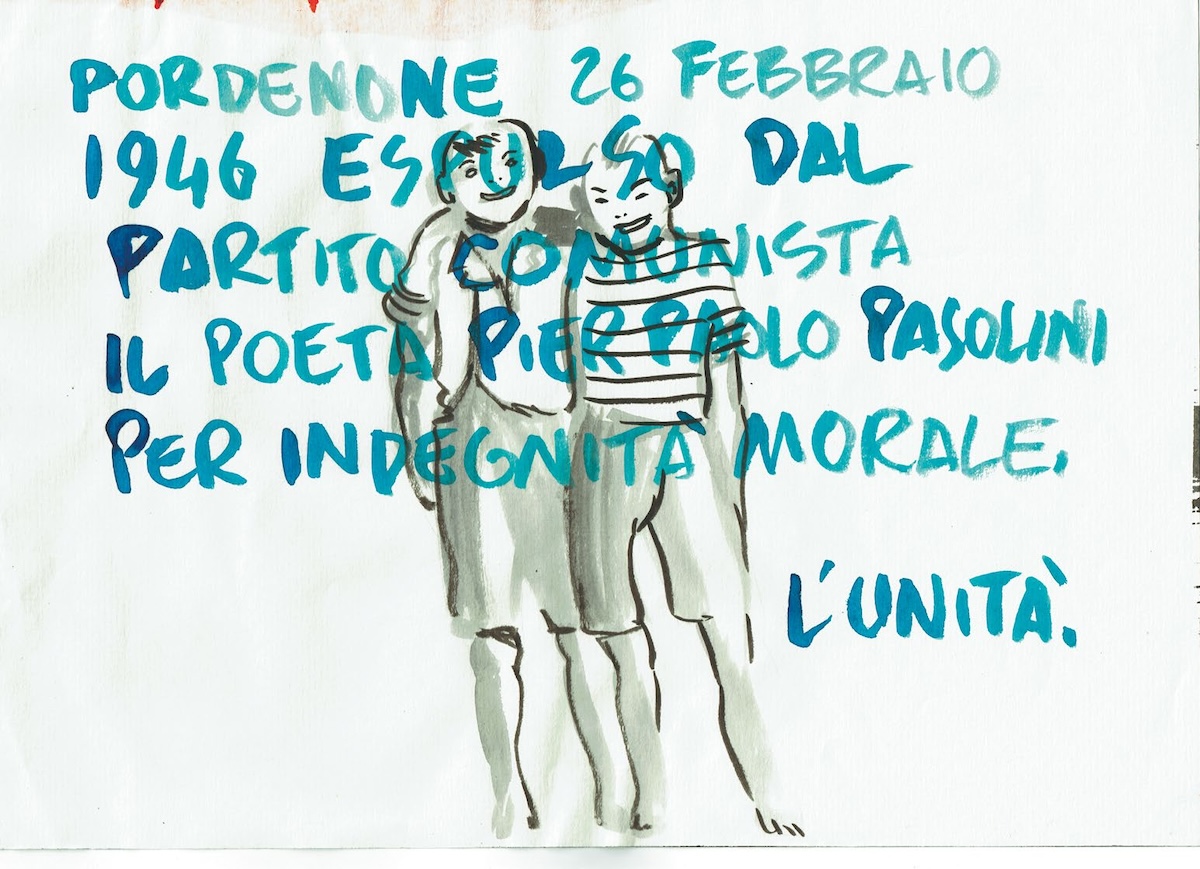 PORDENONE 26 FEBBRAIO
1946 ESPULSO DAL
PARTITO COMUNISTA
IL POETA PIER PAOLO PASOLINI
PER INDEGNITÀ MORALE.
L'UNITÀ.